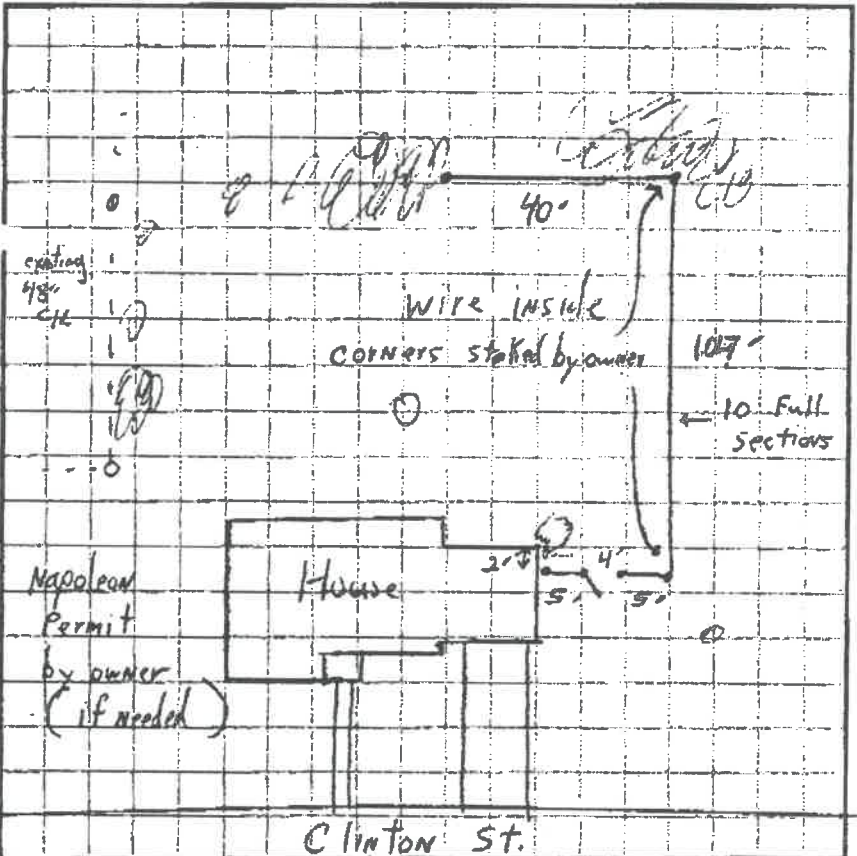 40'
existing
48"
Wire inside
corners staked by owner
107'
10 Full
sections
2'
4'
5'
5'
House
Napoleon
Permit
by owner
(if needed)
Clinton St.